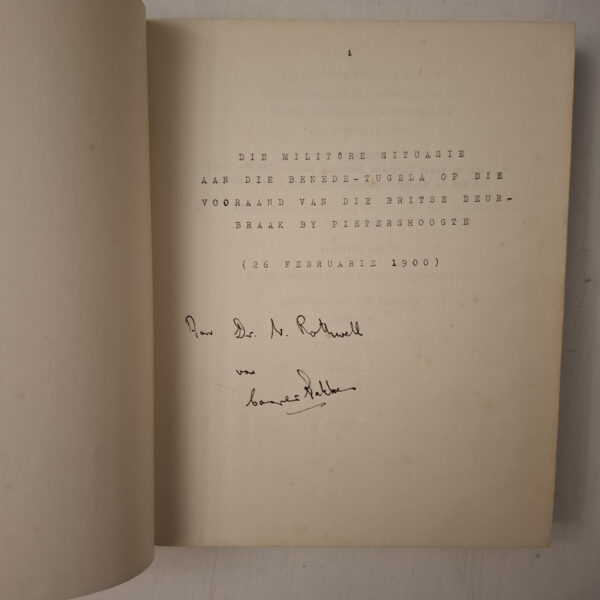 i
DIE MILITÊRE SITUASIE
AAN DIE BENEDE-TUGELA OP DIE
VOORAAND VAN DIE BRITSE DEUR-
BRAAK BY PIETERSHOOGTE
(26 FEBRUARIE 1900)
Dr. N. Rothwell
van